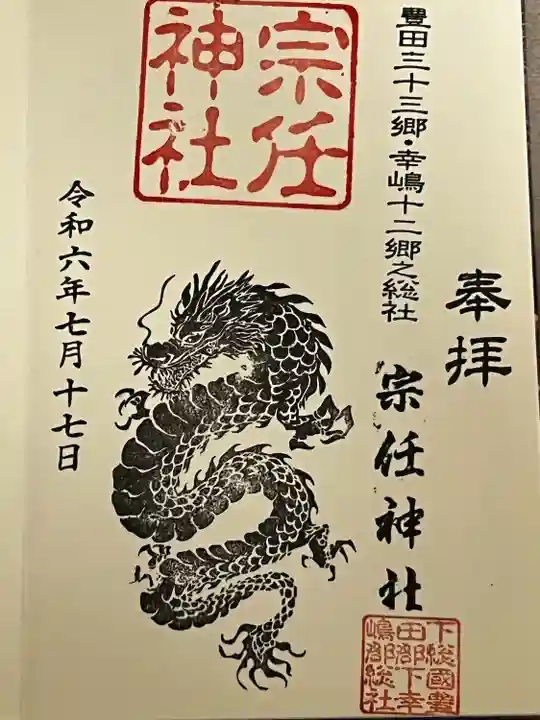 奉拝
豐田三十三郷・幸嶋十二郷之総社
宗任神社
宗任
神社
令和六年七月十七日
下総國豊
田郡下幸
嶋郡総社